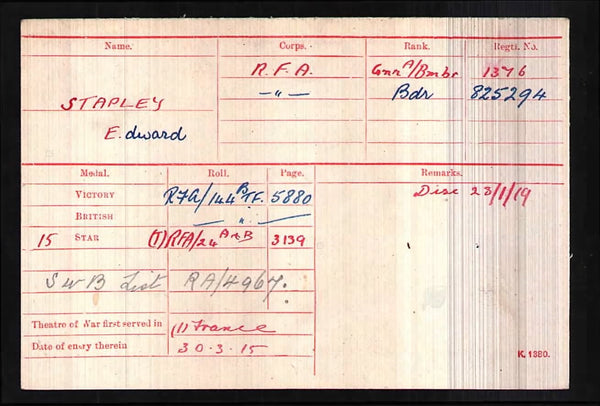 Name. Corps. Rank. Regtl. No.
R.F.A. Gnr A/Bmbr 1376
STAPLEY —"— Bdr 825294
E.dward
Medal. Roll. Page. Remarks.
VICTORY RFA/144B TF. 5880 Disc 23/1/19
BRITISH —"—
15 STAR (T)RFA/24 A&B 3139
SWB List RA/4967.
Theatre of War first served in (1) France
Date of entry therein 30.3.15
K. 1380.